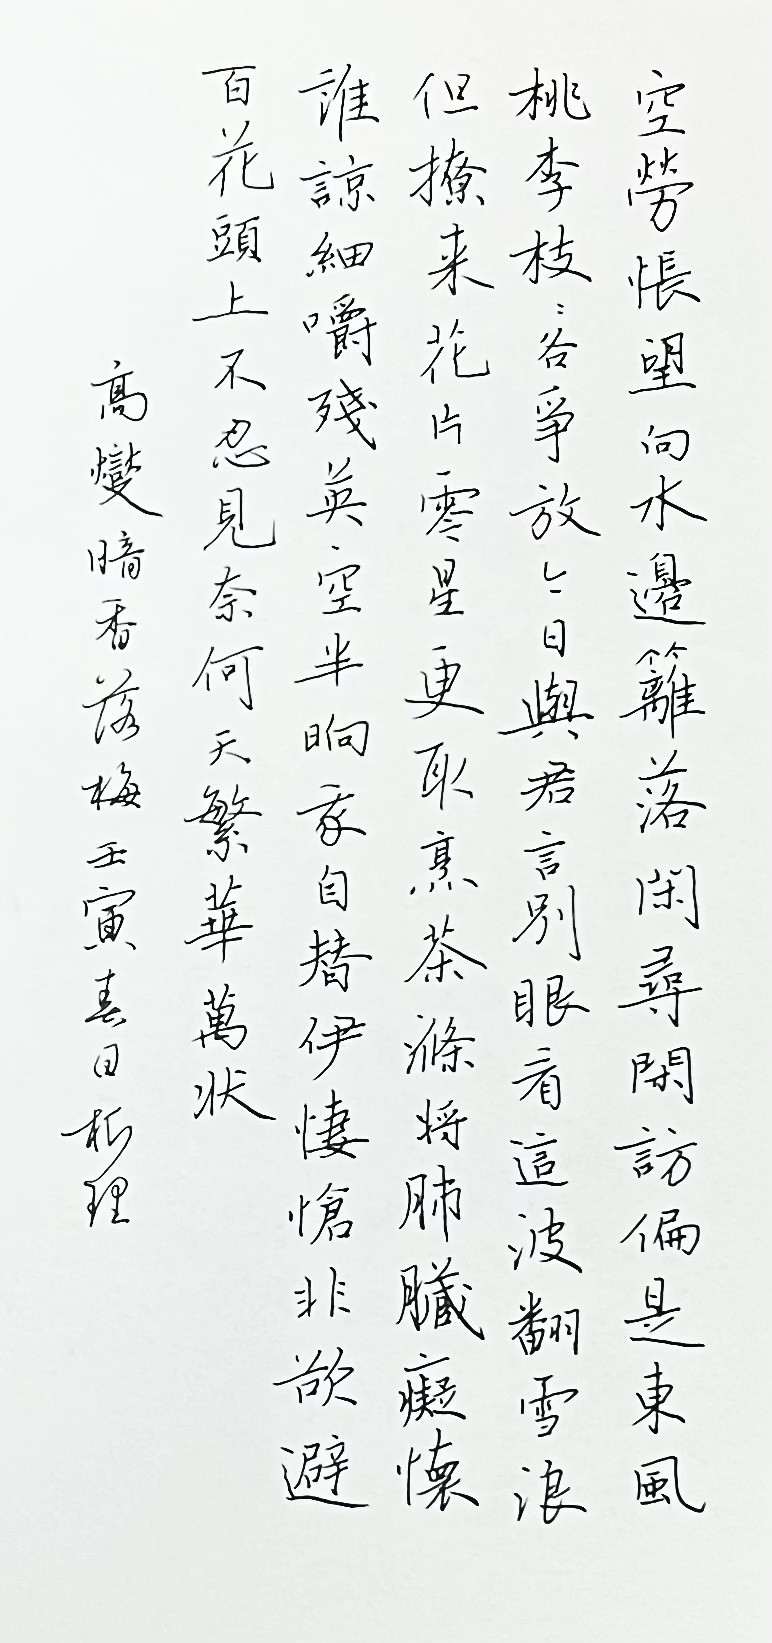 空勞悵望向水邊籬落閑尋閑訪偏是東風
桃李枝〻各爭放今日與君言別眼看這波翻雪浪
但撩来花片零星更取烹茶滌将肺臟癡懷
誰諒細嚼殘英空半晌我自替伊悽愴非欲避
百花頭上不忍見奈何天繁華萬状
高燮暗香落梅壬寅春日柳理